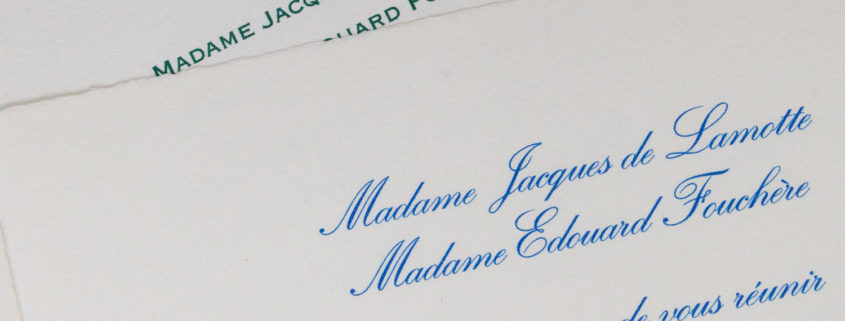 MADAME JACQ
Madame Jacques de Lamotte
Madame Edouard Fouchère
de vous réunir